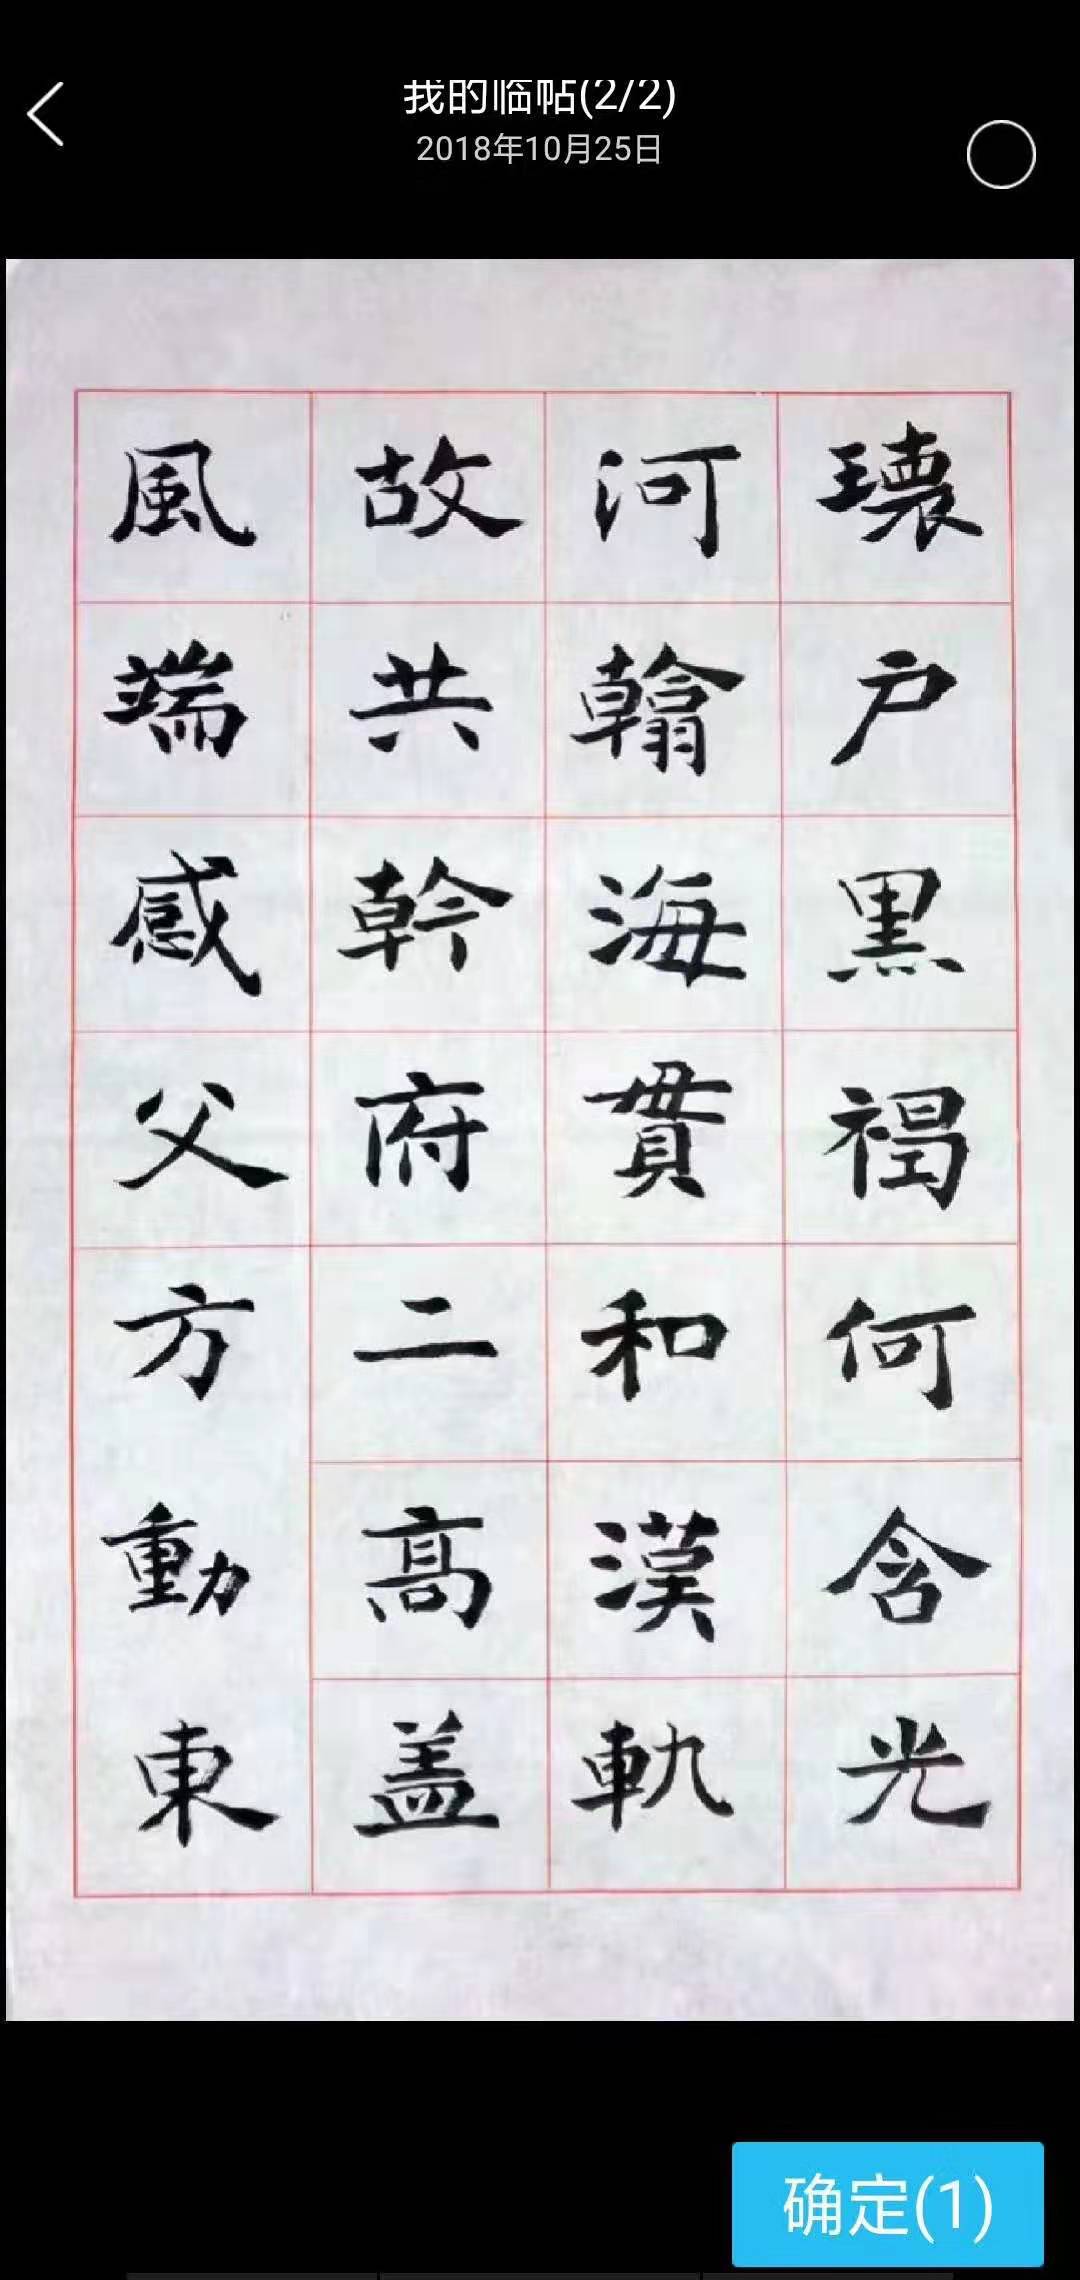 我的临帖(2/2)
2018年10月25日
瓌户黑褐何含光
河翰海貫和漢軌
故共幹府二高盖
風端感父方動東
确定(1)